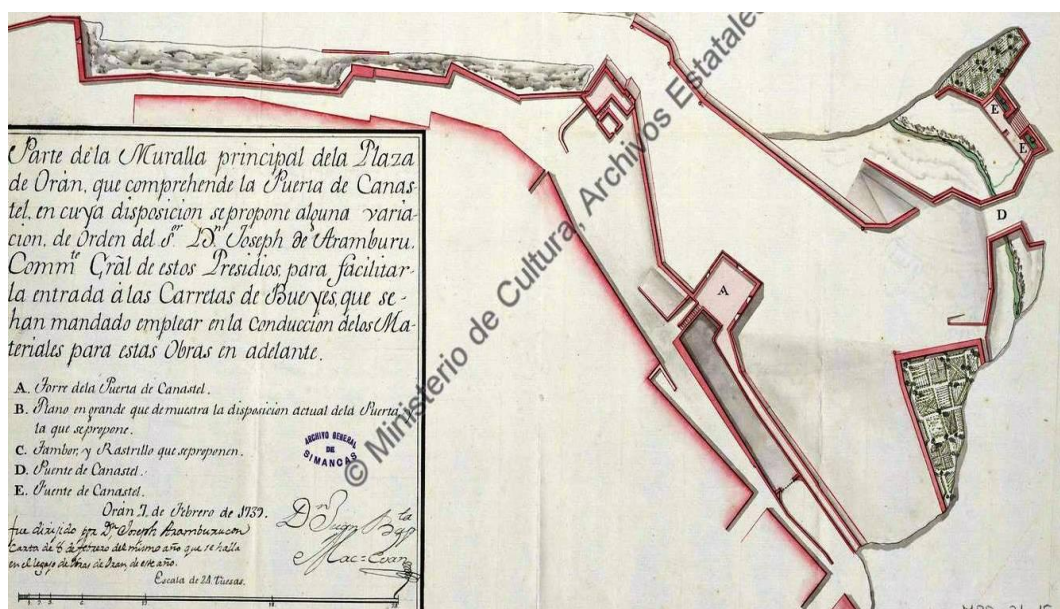 Parte dela Muralla principal dela Plaza
de Orán, que comprehende la Puerta de Canas-
tel, en cuya disposicion se propone alguna varia-
cion, de Orden del S.or D.n Joseph de Aramburu,
Comm.te Grâl de estos Presidios, para facilitar-
la entrada à las Carretas de Bueyes, que se-
han mandado emplear en la conduccion delos Ma-
teriales para estas Obras en adelante.
A. Torre dela Puerta de Canastel.
B. Plano en grande que demuestra la disposicion actual dela Puerta, y
la que se propone.
C. Tambor, y Rastrillo que se proponen.
D. Puente de Canastel.
E. Fuente de Canastel.
Orán 7. de Febrero de 1739.
fue dirigido por D.n Joseph Aramburu con
Carta de 8 de febrero del mismo año que se halla
en el legajo de obras de Oran, de este año.
D.n Juan B.ta
Mac=Evan
Escala de 20 Tuesas.
ARCHIVO GENERAL
DE
SIMANCAS
© Ministerio de Cultura, Archivos Estatales
A
E
E
D